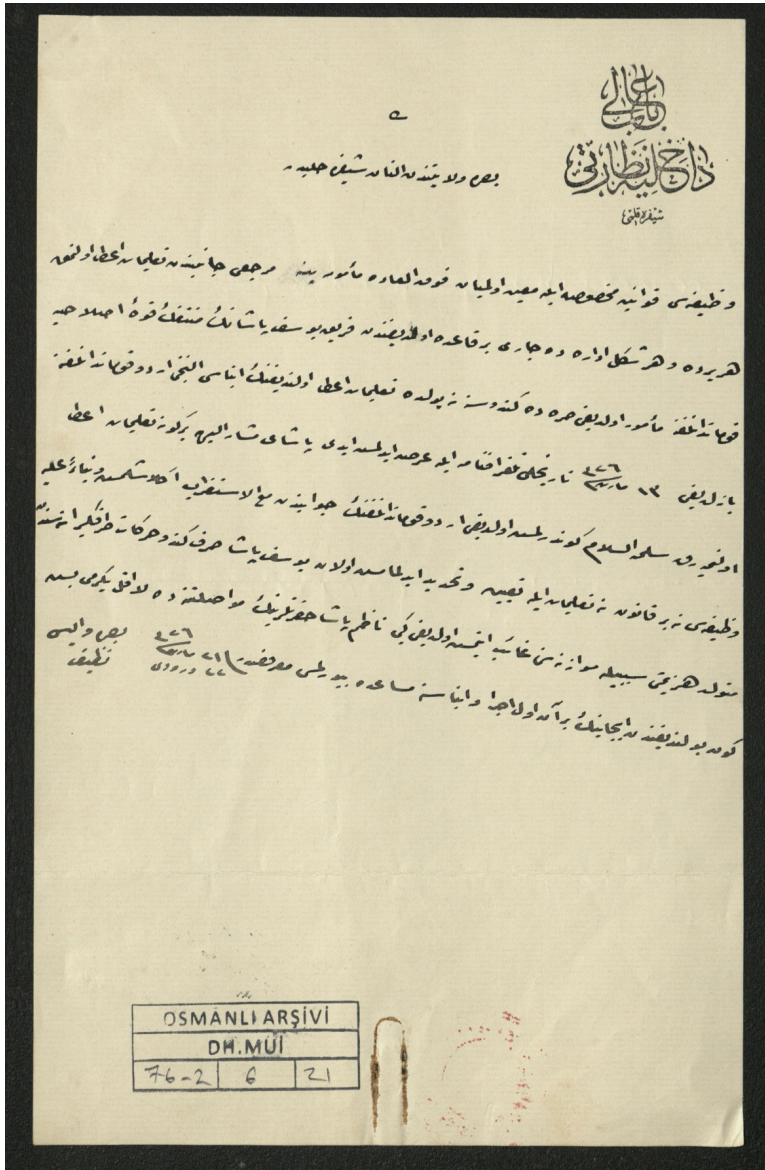 باب عالی
داخلیه نظارتی
شیفره قلمی
بصره ولایتندن النان شیفره حلیدر
وظیفه‌سی قوانین مخصوصه ایله معین اولمیان فوق العاده مأمورینه مرجعی جانبندن تعلیمات اعطا اولنمق
هر یرده و هر شکل اداره ده جاری بر قاعده اولدیغندن فریق یوسف پاشانك منتفك قوۀ اصلاحیه
قوماندانلغنه مأمور اولدیغی صره ده كندوسنه نه یولده تعلیمات اعطا اولندیغنك انباسی التنجی اردو قوماندانلغنه
یازلدیغی ١٣ مارت ٣٢٦ تاریخلی تلغرافنامه ایله عرض ایدلمش ایدی پاشای مشار الیهه بر كونه تعلیمات اعطا
اولنمیه رق سلمه السلام كوندرلمش اولدیغی اردو قوماندانلغنك جوابندن مع الاستغراب اكلاشلمش وبناءً علیه
وظیفه‌سی نه بر قانون نه تعلیمات ایله تعیین وتحدید ایدلمامش اولان یوسف پاشا صرف كندو حركات
متولد هزیمتی سببیله موازنه سنی غائب ایتمش اولدیغی كبی ناظم پاشا حضرتلرینك مواصلتنه ده لااقل یكرمی بش
كون بولندیغندن ایجابنك بر آن اول اجرا وانباسنه مساعده بیورلمسی معروضدر
٢١ مارت ٣٢٦
٢٢ ورودی
بصره والیسی
نظیف
OSMANLI ARŞİVİ
DH.MUİ
76-2 6 21